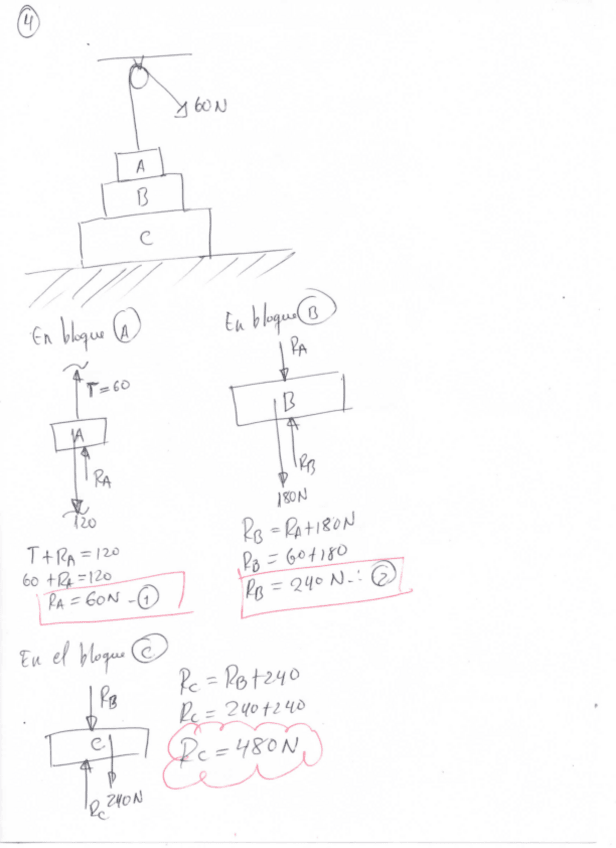 4
60N
A
B
C
En bloque A
T=60
A
RA
120
T+RA=120
60+RA=120
RA=60N-①
En bloque B
RA
B
RB
180N
RB=RA+180N
RB=60+180
RB=240N-∴②
En el bloque C
RB
C
RC
240N
RC=RB+240
RC=240+240
RC=480N